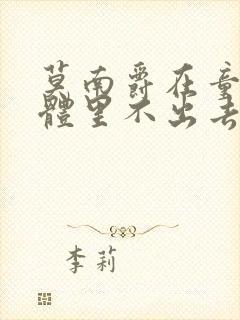 莫南爵在童
體里不出去
李莉